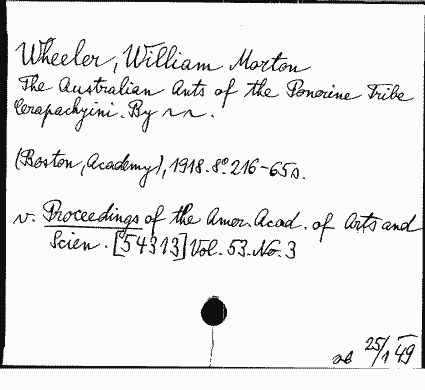 Wheeler, William Morton
The Australian Ants of the Ponerine Tribe
Cerapachyini. By ~~.
(Boston, Academy), 1918. 8° 216-65 s.
v. Proceedings of the Amer. Acad. of Arts and
Scien. [54313] Vol. 53. No. 3
25/1 49